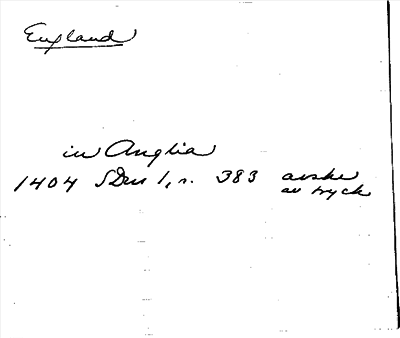 England
in Anglia
1404 SDns 1, n. 383 avskr
av tryck